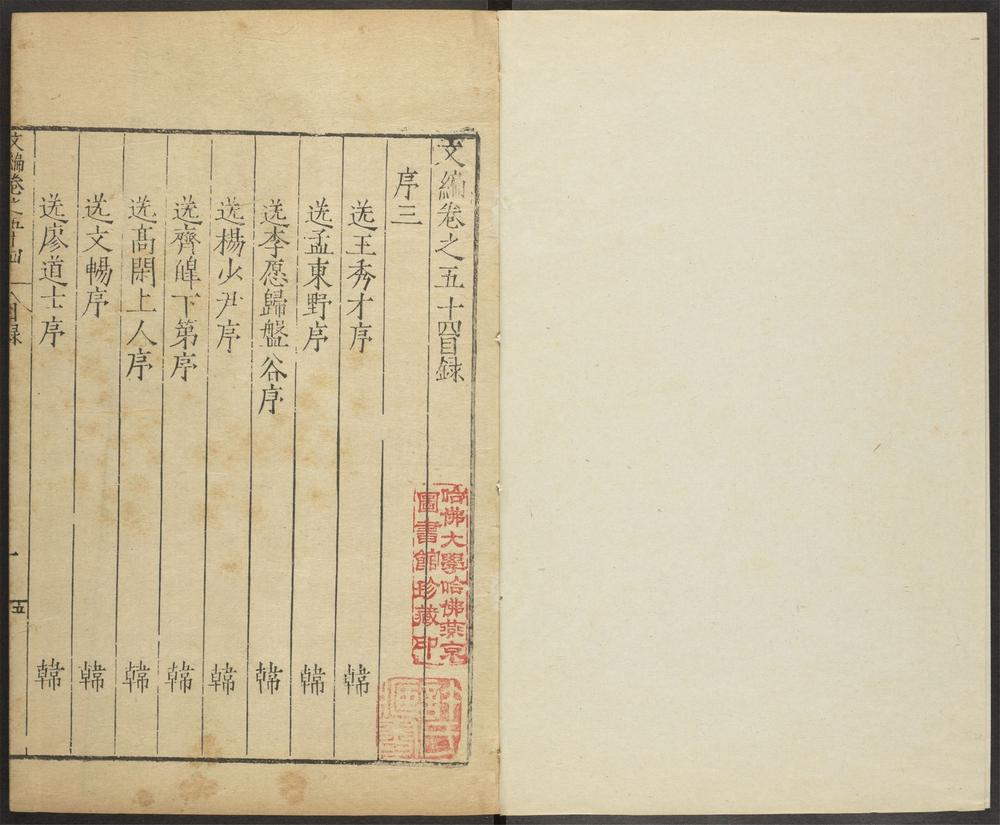 文編卷之五十四目錄
序三
送王秀才序 韓
送孟東野序 韓
送李愿歸盤谷序 韓
送楊少尹序 韓
送齊皥下第序 韓
送高閑上人序 韓
送文暢序 韓
送廖道士序 韓
文編卷之五十四 目錄 一 五
哈佛大學哈佛燕京
圖書館珍藏印